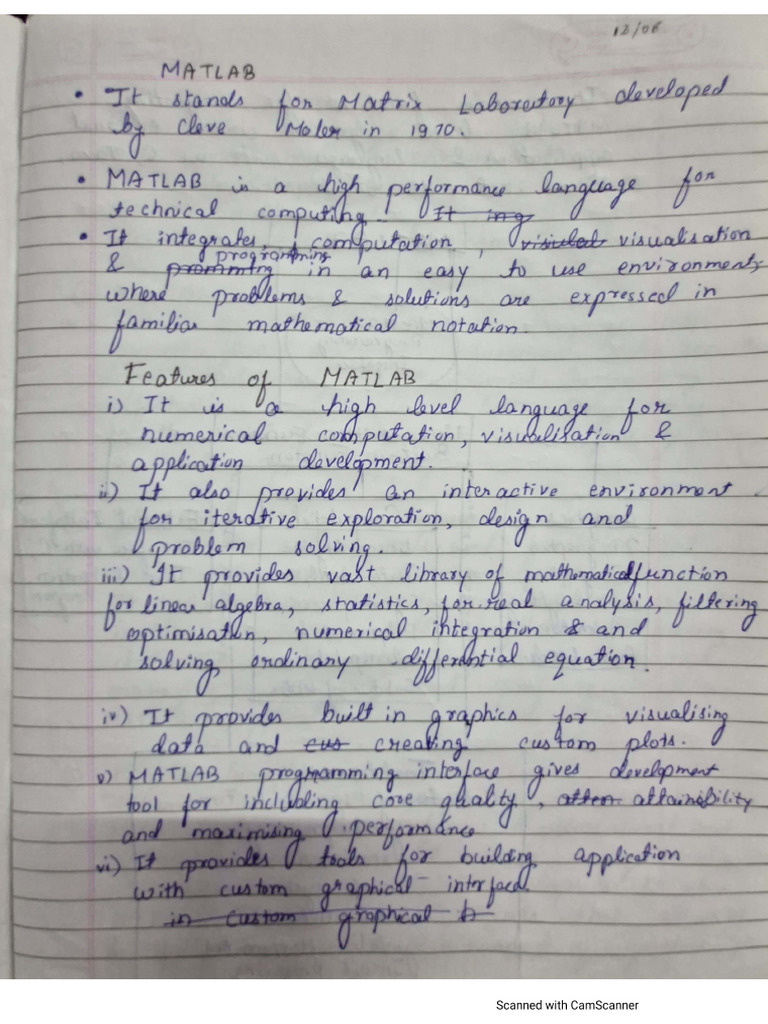 12/06
MATLAB
• It stands for Matrix Laboratory developed
by Cleve Moler in 1970.
• MATLAB is a high performance language for
technical computing. It ing
• It integrates, computation, visualisation
programming
& in an easy to use environments
where problems & solutions are expressed in
familiar mathematical notation.
Features of MATLAB
i) It is a high level language for
numerical computation, visualisation &
application development.
ii) It also provides an interactive environment
for iterative exploration, design and
problem solving.
iii) It provides vast library of mathematical function
for linear algebra, statistics, for real analysis, filtering
optimisation, numerical integration & and
solving ordinary differential equation.
iv) It provides built in graphics for visualising
data and cus creating custom plots.
v) MATLAB programming interface gives development
tool for including core quality, attainability
and maximising performance
vi) It provides tools for building application
with custom graphical interface
in custom graphical b
Scanned with CamScanner